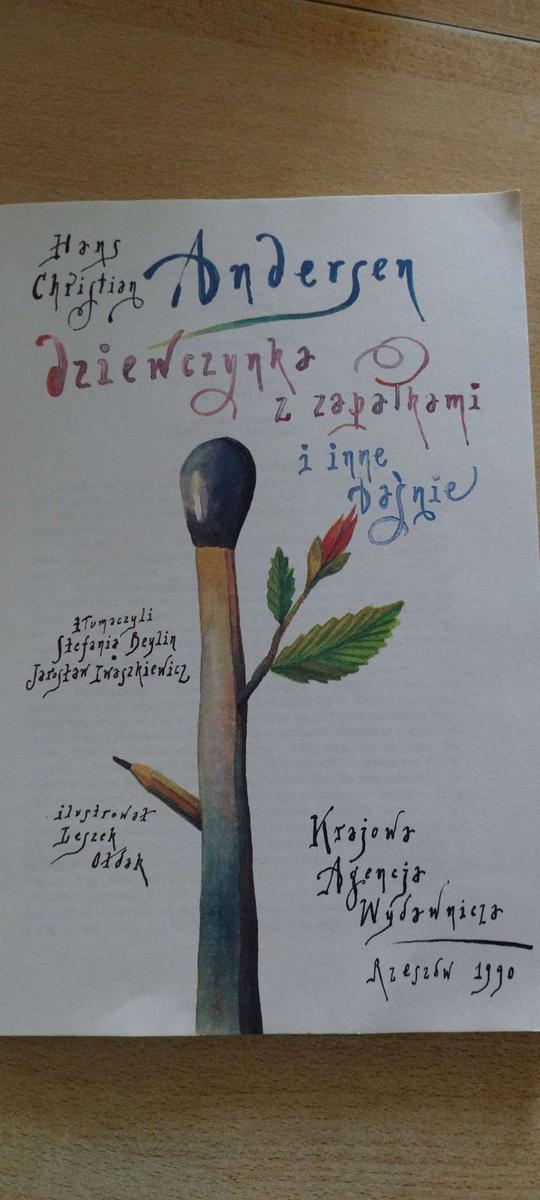 Hans
Christian
Andersen
dziewczynka
z zapałkami
i inne
baśnie
tłumaczyli
Stefania Beylin
Jarosław Iwaszkiewicz
ilustrował
Leszek
Ołdak
Krajowa
Agencja
Wydawnicza
Rzeszów 1990